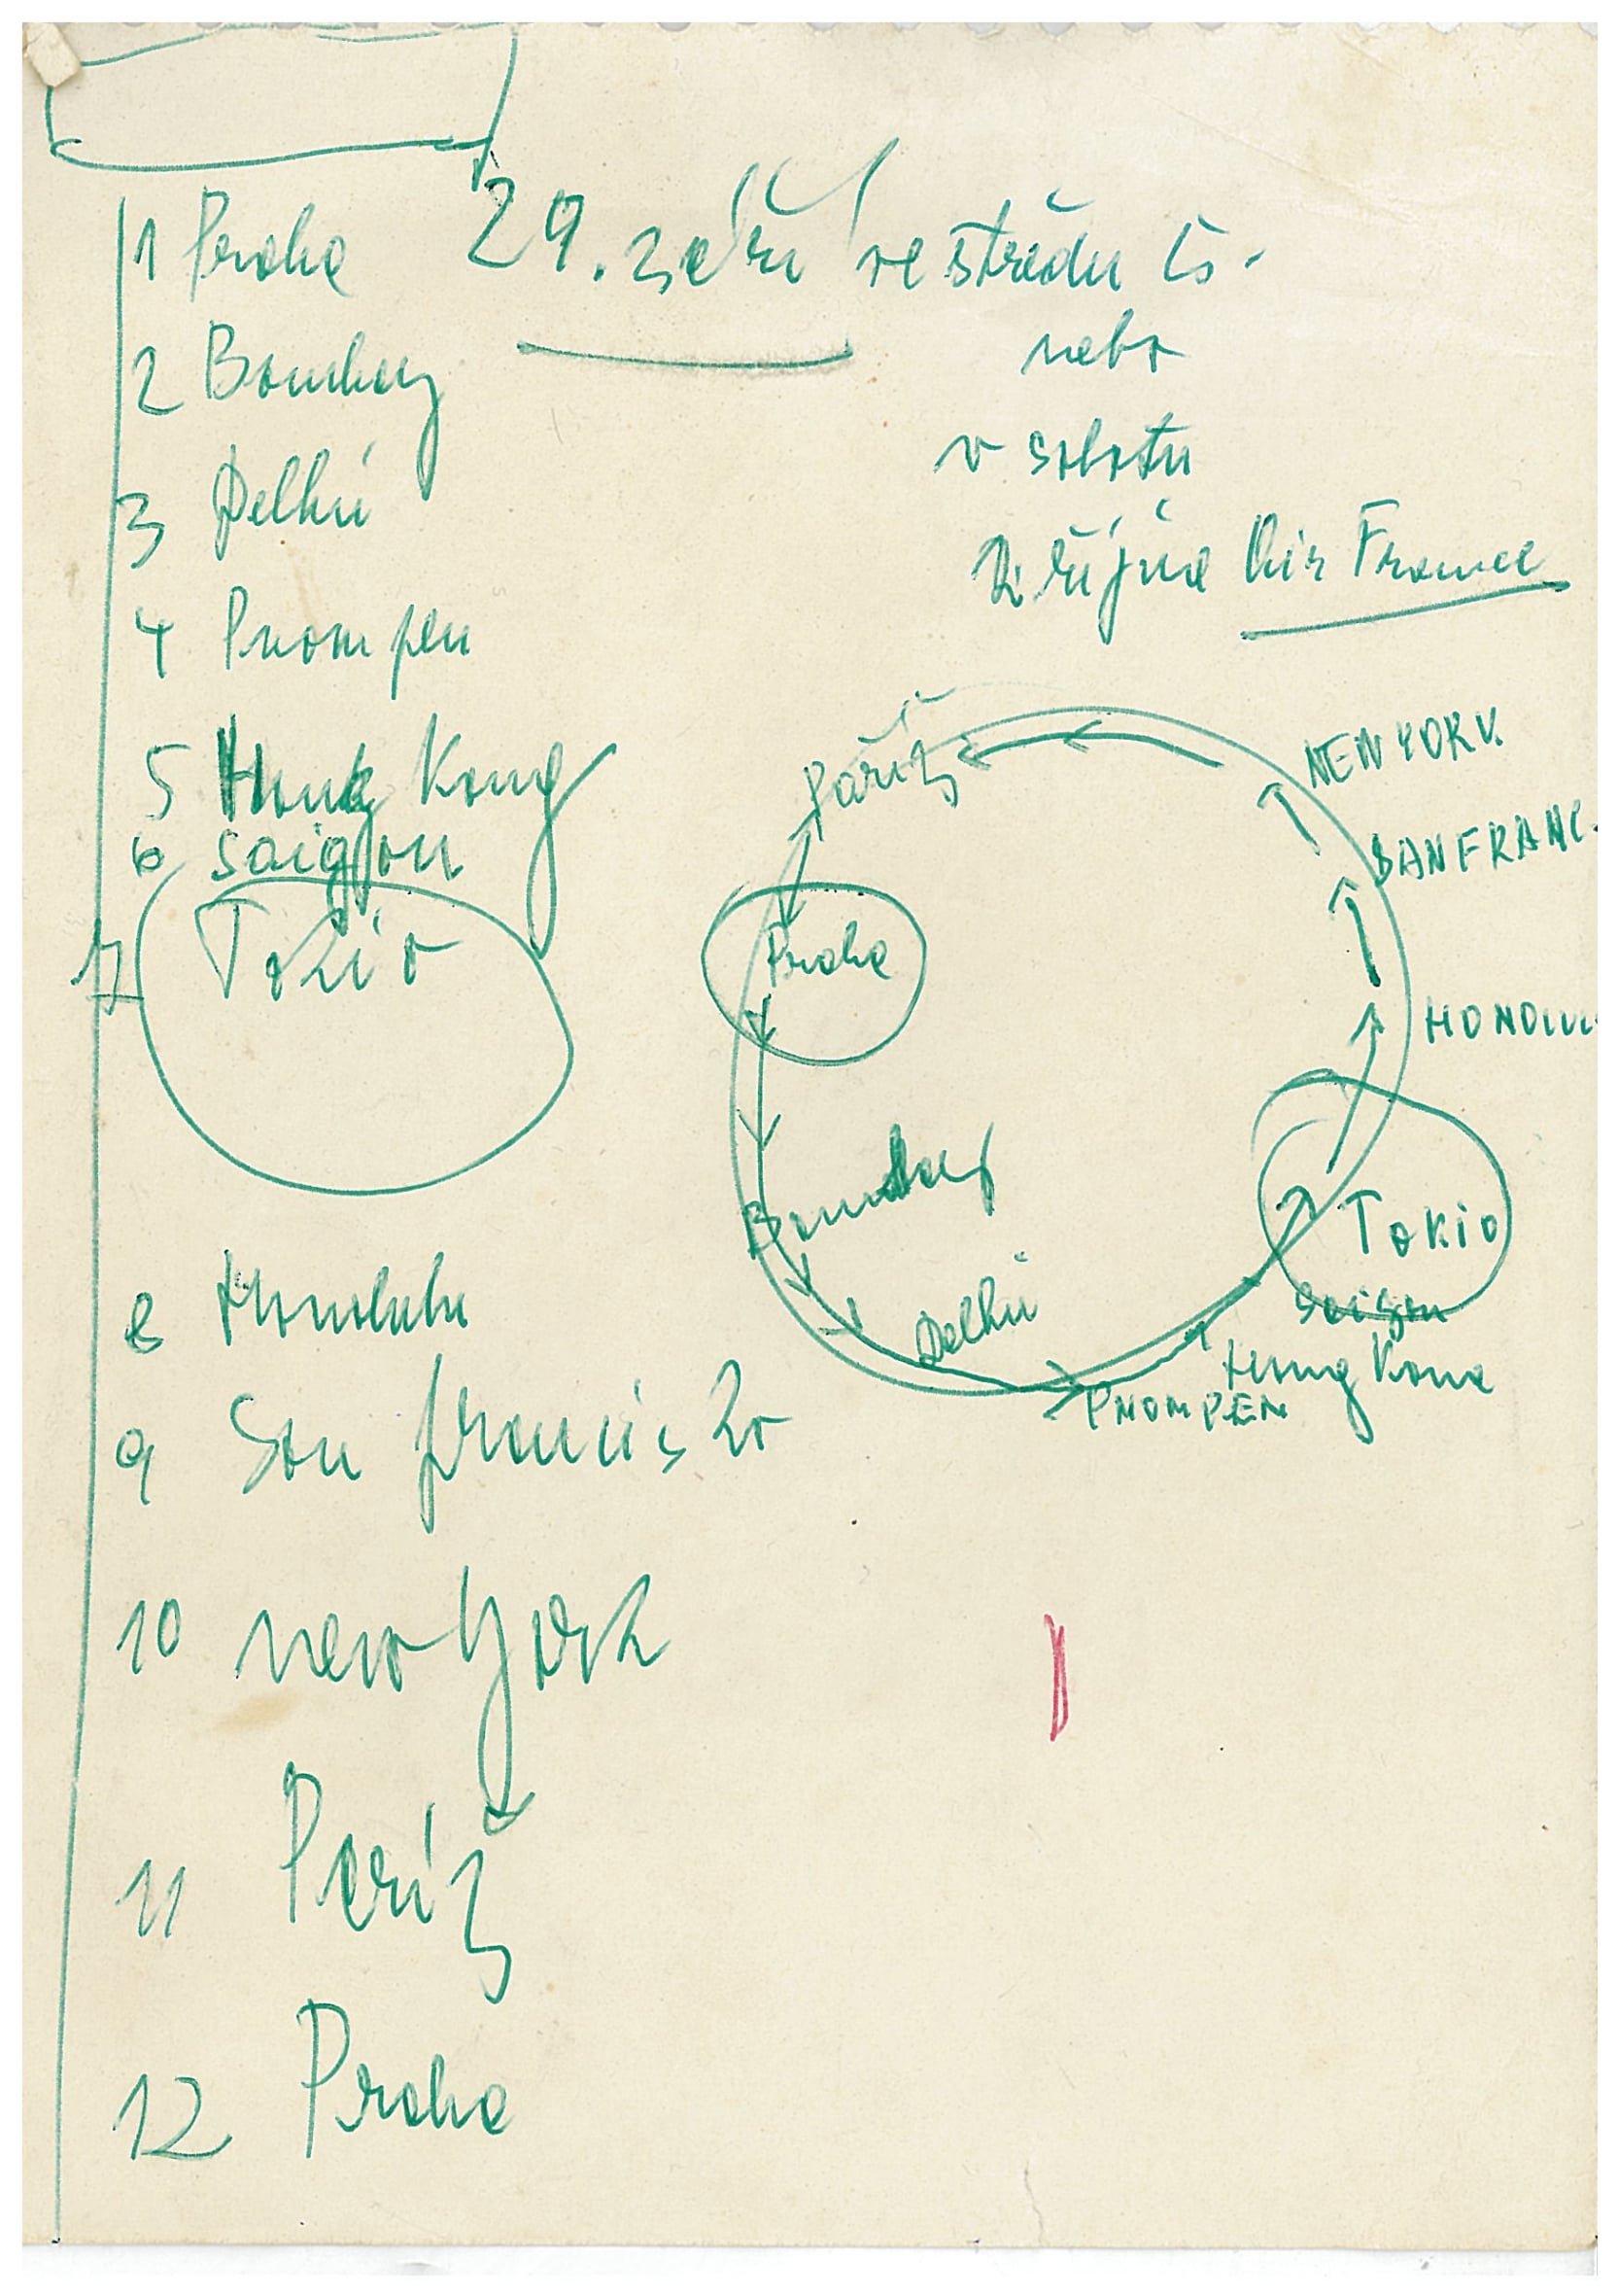 1 Praha 29. září ve středu čs.
nebo
2 Bombay
v sobotu
3 Delhií
2. října Air France
4 Pnom pen
5 Honk Kong
6 Saigon
7 Tokio
8 Honolulu
9 San francisko
10 new York
11 Paříž
12 Praha
Paříž
NEW YORK.
SAN FRANC.
Praha
HONOLU
Bombay
TOKIO
Saigon
Delhií
Hong Kong
PNOMPEN